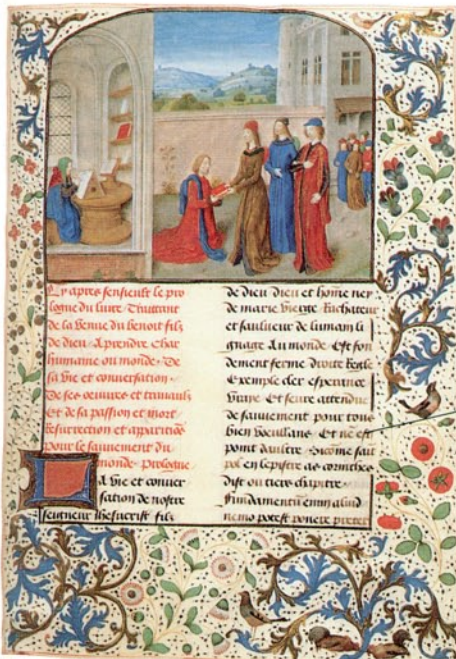 Cy apres sensieult le pro
logue du liure / Traittant
de la Venue du benoit filz
de dieu. A prendre char
humaine ou monde. De
sa Vie et conuersation.
De ses oeuures et trauaulz
Et de sa passion et mort
Resurrection et apparicio
pour le sauuement du
monde. prologue
La Vie et conuer
sation de nostre
seigneur Ihesucrist filz
de dieu Dieu et home ney
de marie Vierge Rachateur
et sauueur de lumain li
gnage du monde. Est fon
dement ferme Droite Regle
Exemple cler esperance
Vraye Et seure attendue
de sauuement pour tous
bien Voeullans. Et ne est
point daultre. Sicome saint
pol en lepistre as corinthes
Dist ou tiers chapitre.
Fundamentu enim aliud
nemo potest ponere preter